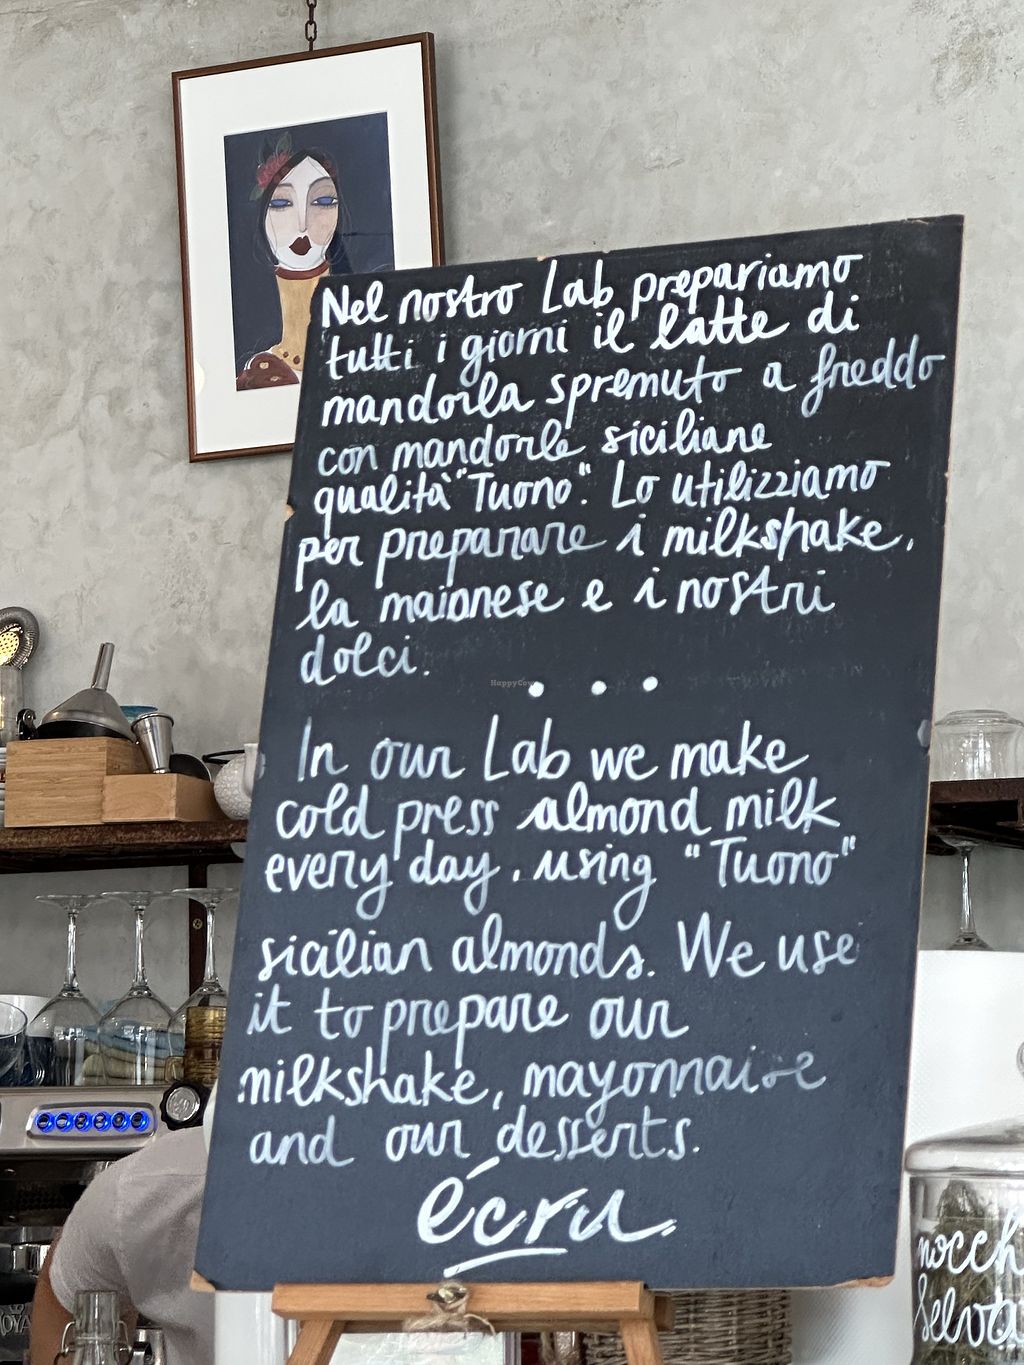 Nel nostro Lab prepariamo
tutti i giorni il latte di
mandorla spremuto a freddo
con mandorle siciliane
qualità "Tuono". Lo utilizziamo
per preparare i milkshake,
la maionese e i nostri
dolci.
HappyCow
. . .
In our Lab we make
cold press almond milk
every day, using "Tuono"
sicilian almonds. We use
it to prepare our
milkshake, mayonnaise
and our desserts.
écru.